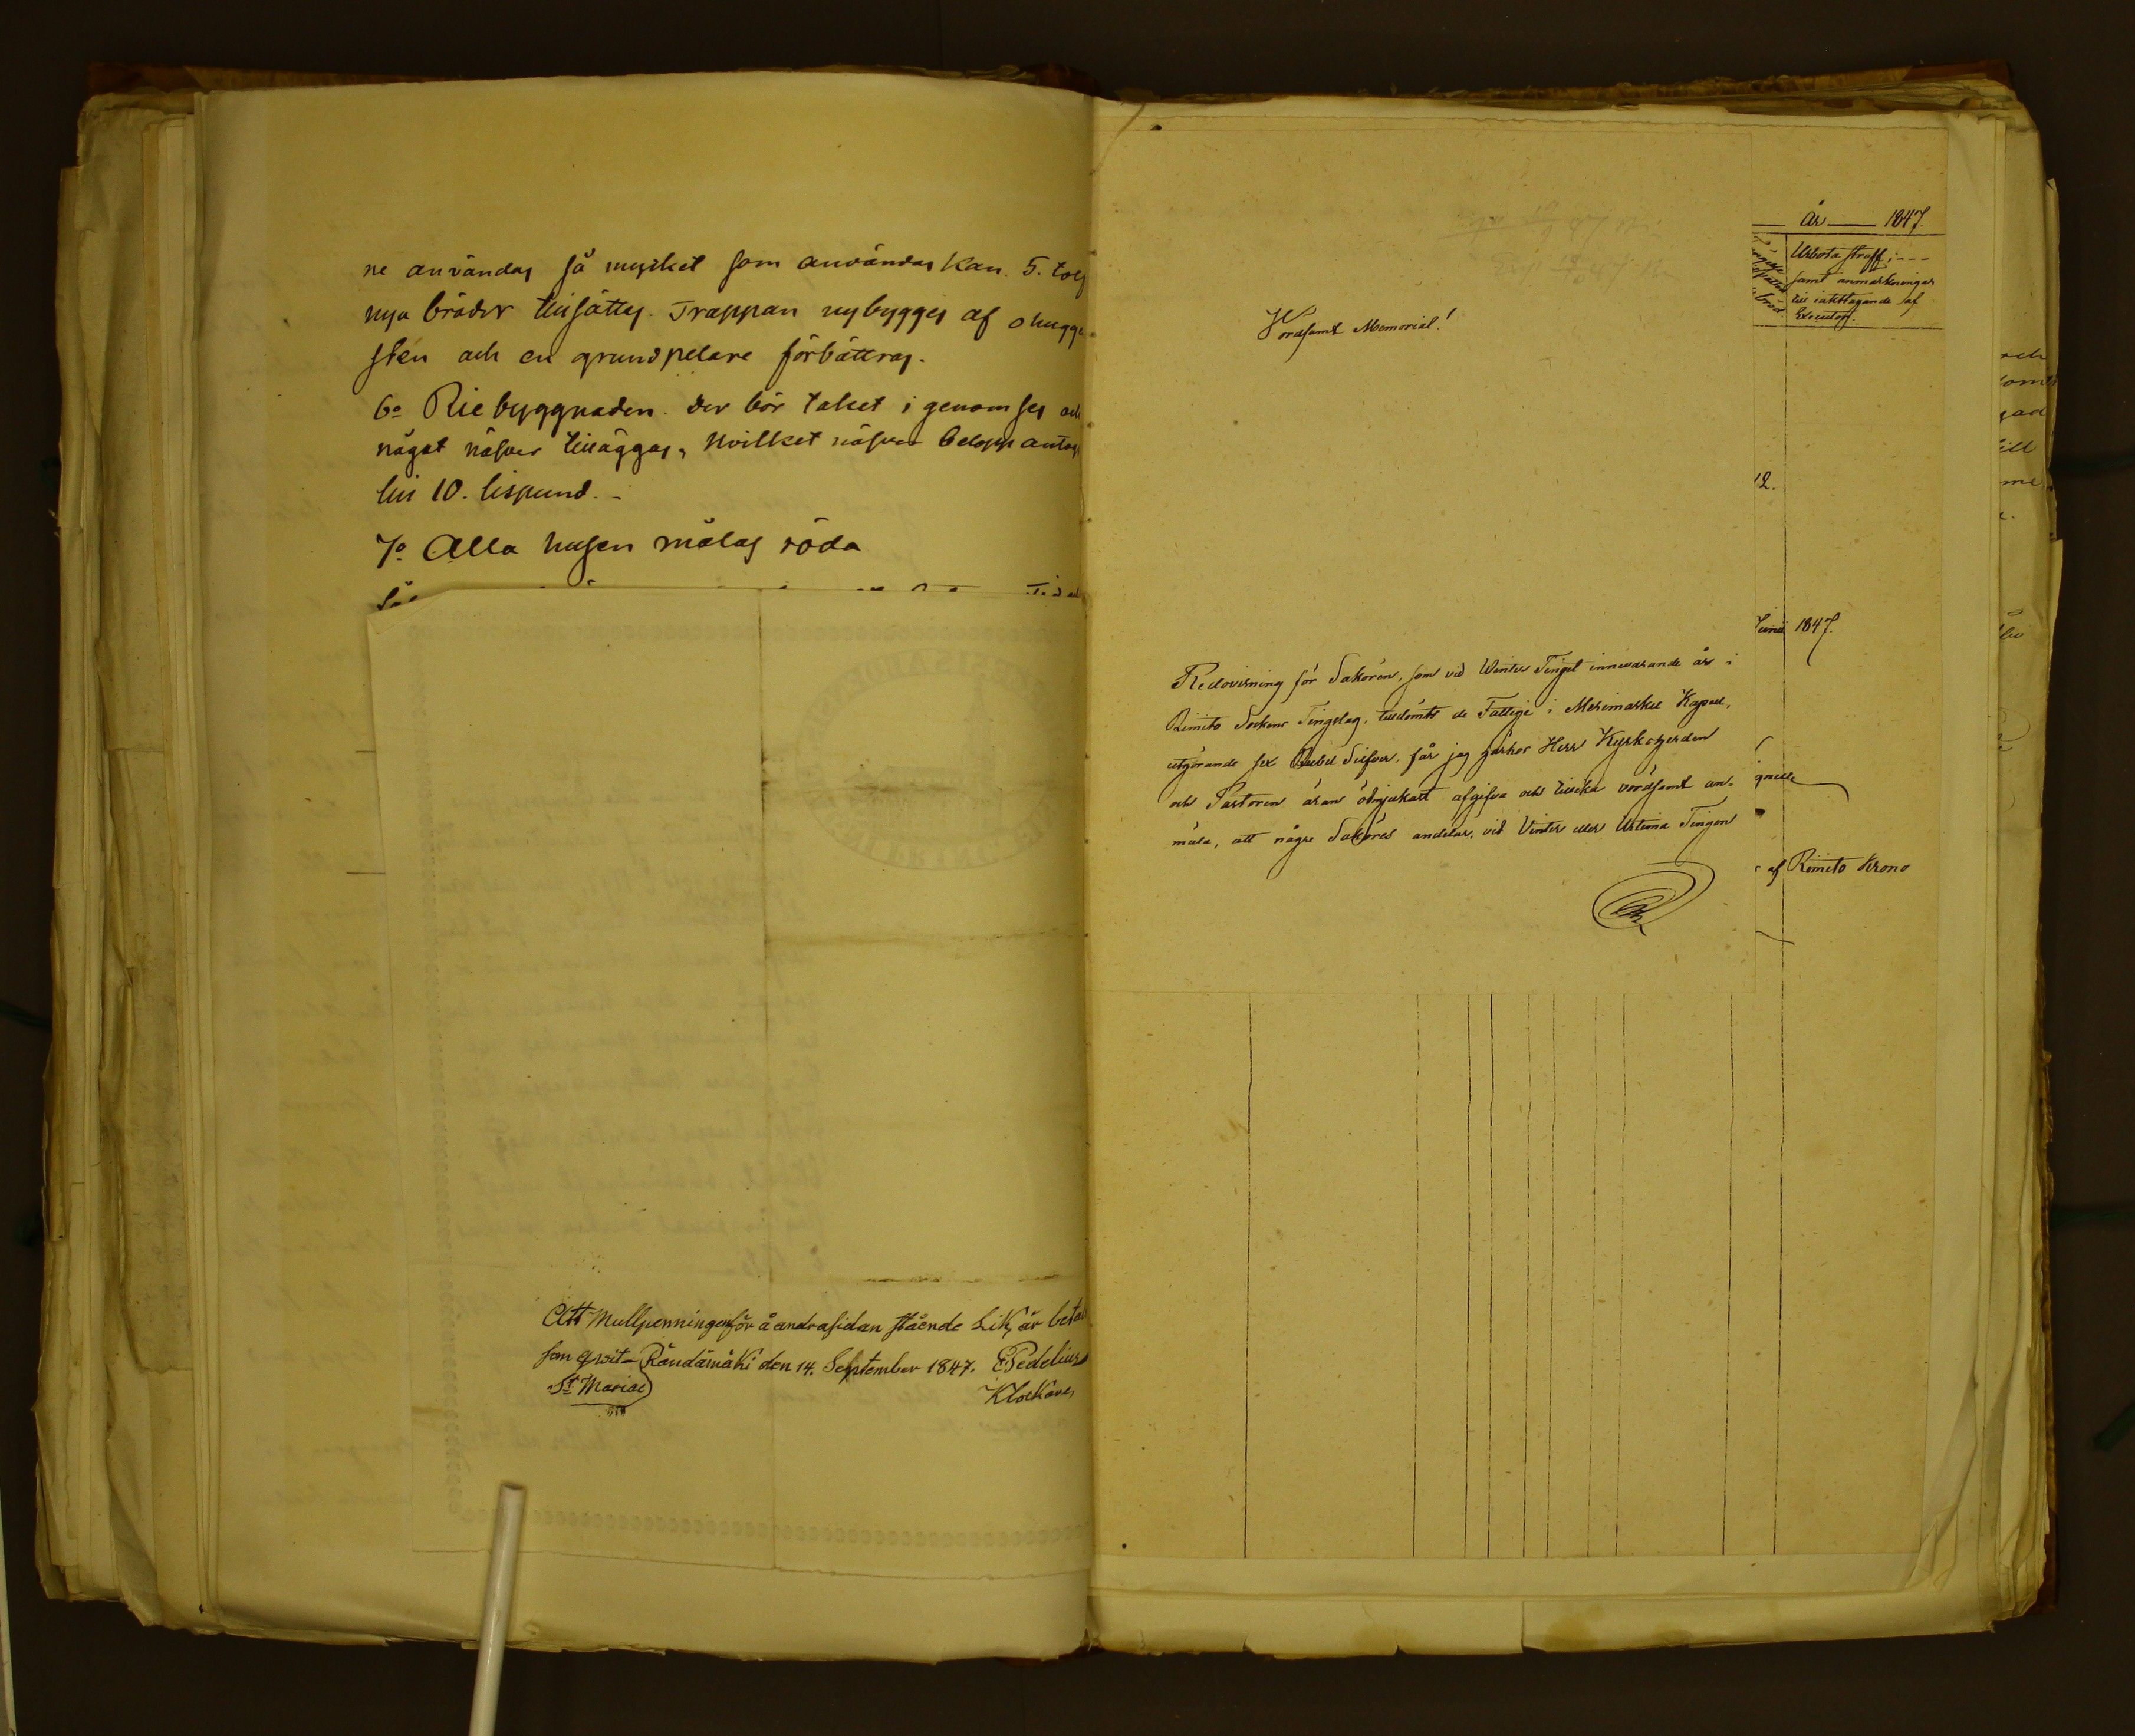 ne användas så mycket som användas kan. 5. tolf
nya bräder tillsättes. Trappan nybygges af ohugge
sten och en grundpelare förbättras.
6o Riebyggnaden. der bör taket igenomses och
något näfver tilläggas, hvilket näfver belopp antages
till 10. lispund.
7o Alla husen målas röda
Att Mullpenningen för å andra sidan stående Lik, är betal
som qvit= Rändämäki den 14. September 1847. E. Pedelius
St Mariae
Klockare,
Vördsamt Memorial!
Redovisning för Saköron, som vid Winter Tinget innevarande år i
Rimito Sockens Tingslag, tilldömts de Fattige i Merimasku Kapell,
utgörande sex Rubel Silfver, får jag härhos Herr Kyrkoherden
och Pastoren äran ödmjukast afgifva och tillika vördsamt an-
mäla, att några Saköres andelar, vid Vinter eller Urtima Tingen
år 1847.
Urbota straff; ---
samt anmärkningar
till iakttagande af
Executor.
bröd
12.
Junii 1847.
gnelle
af Rimito Krono
och
som
gad
till
me